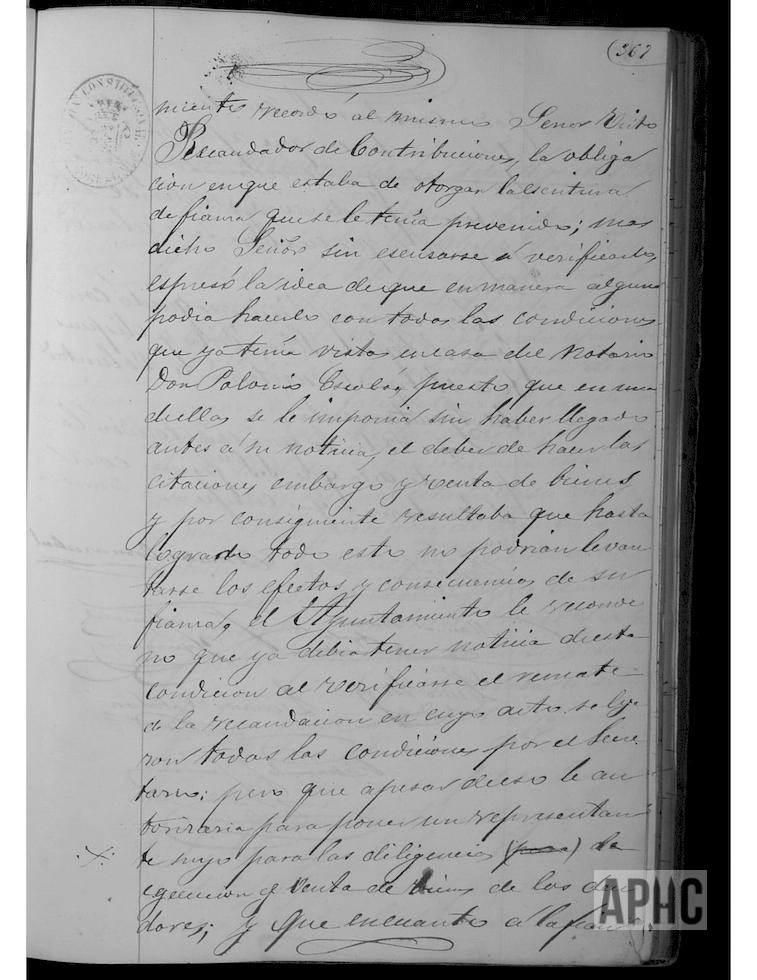 367
miento recordó al mismo Señor Visto
Recaudador de Contribuciones, la obliga
cion en que estaba de otorgar la escritura
de fianza que se le tenía prevenido; mas
dicho Señor sin escusarse á verificarlo,
espresó la idea de que en manera alguna
podia hacerlo con todas las condiciones
que ya tenía vistas en casa del Notario
Don Polonio Escolás, puesto que en una
de ellas se le imponia sin haber llegado
antes á su noticia, el deber de hacer las
citaciones embargo y venta de bienes
y por consiguiente resultaba que hasta
lograrlo todo esto no podrian levan
tarse los efectos y consecuencias de su
fianza, el Ayuntamiento le reconvi
no que ya debia tener noticia de esta
condicion al verificarse el remate
de la recaudacion en cuyo acto se leye
ron todas las condiciones por el Secre
tario; pero que apesar de eso le au
torizaria para poner un representan
te suyo para las diligencias (para) de
egecucion y venta de bienes de los deu
dores; y que en cuanto á la fianza
APHC